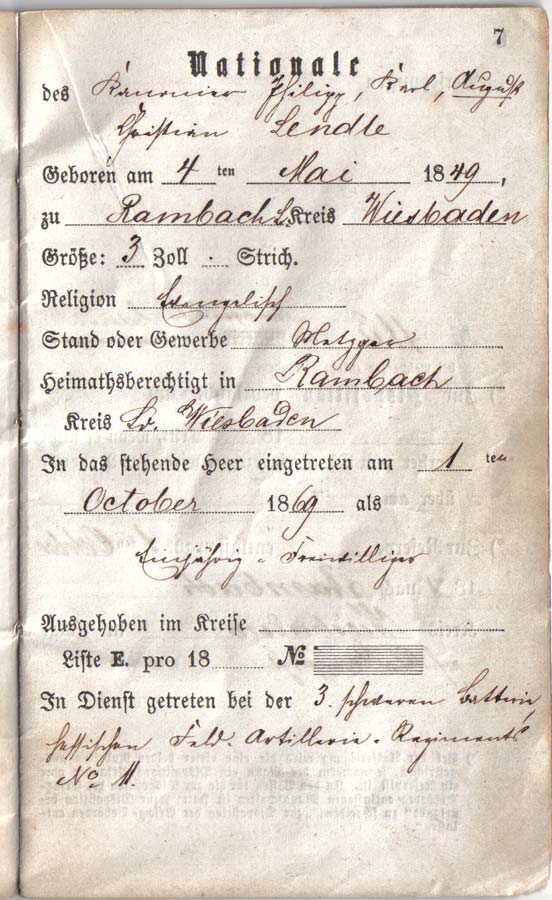 7
Nationale
des Kanonier Philipp, Karl, August
Christian Lendle
Geboren am 4 ten Mai 1849,
zu Rambach L. Kreis Wiesbaden
Größe: 3 Zoll . Strich.
Religion Evangelisch
Stand oder Gewerbe Metzger
Heimathsberechtigt in Rambach
Kreis Wiesbaden
In das stehende Heer eingetreten am 1 ten
October 1869 als
Einjährig-Freiwilliger
Ausgehoben im Kreise
Liste E. pro 18 No
In Dienst getreten bei der 3. schweren Batterie,
hessischen Feld-Artillerie-Regiments
No 11.